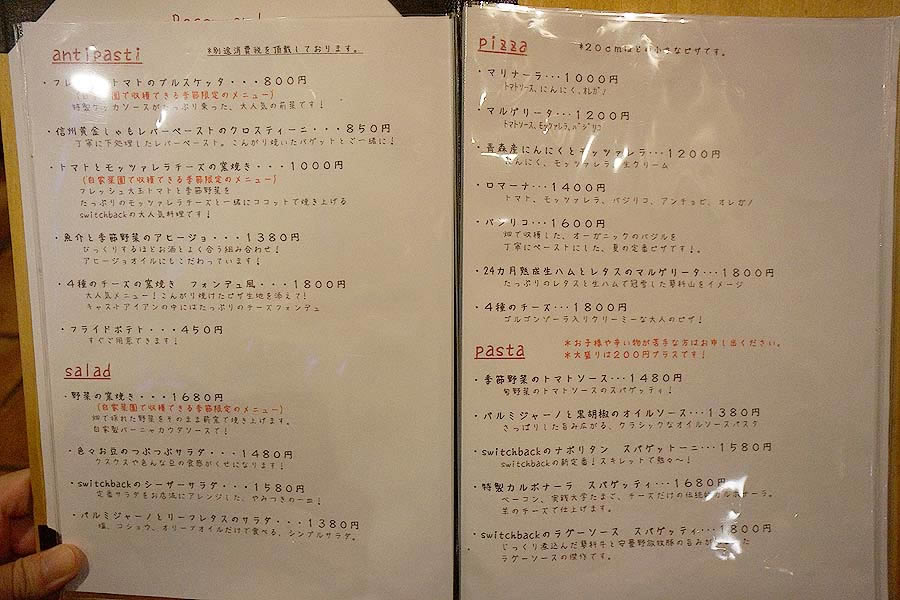 Recommend
antipasti
*別途消費税を頂戴しております。
・フレッシュトマトのブルスケッタ・・・800円
(自家菜園で収穫できる季節限定のメニュー)
特製ケッカソースがたっぷり乗った、大人気の前菜です!
・信州黄金しゃもレバーペーストのクロスティーニ・・・850円
丁寧に下処理したレバーペースト。こんがり焼いたバゲットとご一緒に!
・トマトとモッツァレラチーズの窯焼き・・・1000円
(自家菜園で収穫できる季節限定のメニュー)
フレッシュ大玉トマトと季節野菜を
たっぷりのモッツァレラチーズと一緒にココットで焼き上げる
switchbackの大人気料理です!
・魚介と季節野菜のアヒージョ・・・1380円
びっくりするほどお酒とよく合う組み合わせ!
アヒージョオイルにもこだわっています!
・4種のチーズの窯焼き フォンデュ風・・・1800円
大人気メニュー!こんがり焼けたピザ生地を添えて!
キャストアイアンの中にはたっぷりのチーズフォンデュ
・フライドポテト・・・450円
すぐご用意できます!
salad
・野菜の窯焼き・・・1680円
(自家菜園で収穫できる季節限定のメニュー)
畑で採れた野菜をそのまま薪窯で焼き上げます。
自家製バーニャカウダソースで!
・色々お豆のつぶつぶサラダ・・・1480円
クスクスや色んな豆の食感がくせになります!
・switchbackのシーザーサラダ・・・1580円
定番サラダをお店流にアレンジした、やみつきの一皿!
・パルミジャーノとリーフレタスのサラダ・・・1380円
塩、コショウ、オリーブオイルだけで食べる、シンプルサラダ。
pizza
*20cmほどの小さなピザです。
・マリナーラ・・・1000円
トマトソース、にんにく、オレガノ
・マルゲリータ・・・1200円
トマトソース、モッツァレラ、バジリコ
・青森産にんにくとモッツァレラ・・・1200円
にんにく、モッツァレラ、生クリーム
・ロマーナ・・・1400円
トマト、モッツァレラ、バジリコ、アンチョビ、オレガノ
・バジリコ・・・1600円
畑で収穫した、オーガニックのバジルを
丁寧にペーストにした、夏の定番ピザです!。
・24カ月熟成生ハムとレタスのマルゲリータ・・・1800円
たっぷりのレタスと生ハムで冠雪した蓼科山をイメージ
・4種のチーズ・・・1800円
ゴルゴンゾーラ入りクリーミーな大人のピザ!
pasta
*お子様や辛い物が苦手な方はお申し出ください。
*大盛りは200円プラスです!
・季節野菜のトマトソース・・・1480円
旬野菜のトマトソースのスパゲッティ!
・パルミジャーノと黒胡椒のオイルソース・・・1380円
さっぱりした旨み広がる、クラシックなオイルソースパスタ
・switchbackのナポリタン スパゲットーニ・・・1580円
switchbackの新定番!スキレットで熱々〜!
・特製カルボナーラ スパゲッティ・・・1680円
ベーコン、実践大学たまご、チーズだけの伝統的カルボナーラ。
羊のチーズで仕上げます。
・switchbackのラグーソース スパゲッティ・・・1800円
じっくり煮込んだ蓼科牛と安曇野放牧豚の旨みが
ラグーソースの傑作です。